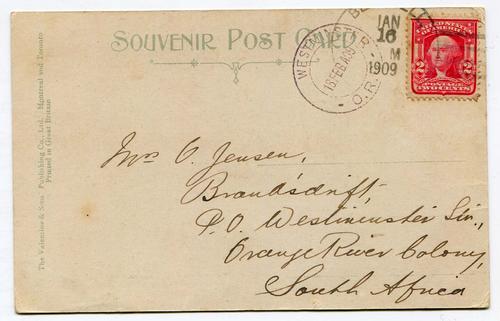 SOUVENIR POST CARD
JAN
16
M
1909
WESTMINSTER
O.R.C.
UNITED STATES
OF AMERICA
2 2
POSTAGE
TWO CENTS
Mrs O. Jensen,
Brandsdrift,
P.O. Westminster Stn.,
Orange River Colony,
South Africa
The Valentine & Sons Publishing Co., Ltd., Montreal and Toronto
Printed in Great Britain